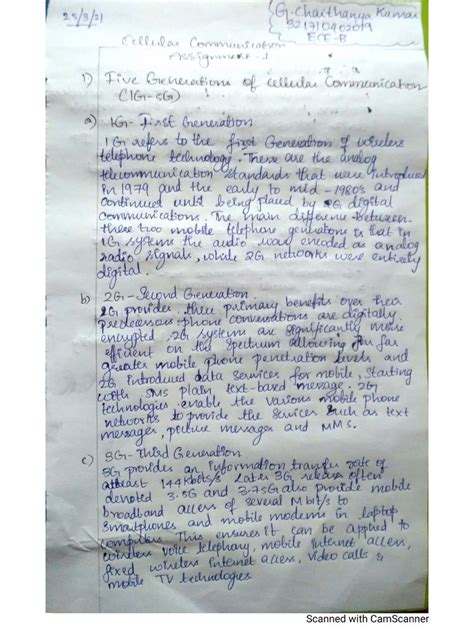 25/3/21
G. Chaithanya Kumar
321710402019
ECE-B
Cellular Communication
Assignment-1
1) Five Generations of cellular Communication
(1G-5G)
a) 1G- First Generation
1G refers to the first Generation of wireless
telephone technology. These are the analog
telecommunication standards that were introduced
in 1979 and the early to mid-1980's and
continued until being placed by 2G digital
Communications. The main difference between
these two mobile telephone generations is that in
1G systems the audio was encoded as analog
radio signals, while 2G networks were entirely
digital.
b) 2G-Second Generation
2G provides three primary benefits over their
Predecessors phone conversations are digitally
encrypted 2G systems are significantly more
efficient on the spectrum allowing for far
greater mobile phone penetration levels and
2G introduced data services for mobile, starting
with SMS plain text-based message. 2G
technologies enable the various mobile phone
networks to provide the services such as text
messages, picture messages and MMS.
c) 3G-Third Generation
3G provides an information transfer rate of
atleast 144kbits/s later 3G release often
denoted 3.5G and 3.75G also provide mobile
broadband access of several Mbit/s to
smartphones and mobile modems in laptop
computers This ensures it can be applied to
wireless voice telephony, mobile Internet access,
fixed wireless internet access, video calls &
mobile TV technologies
Scanned with CamScanner